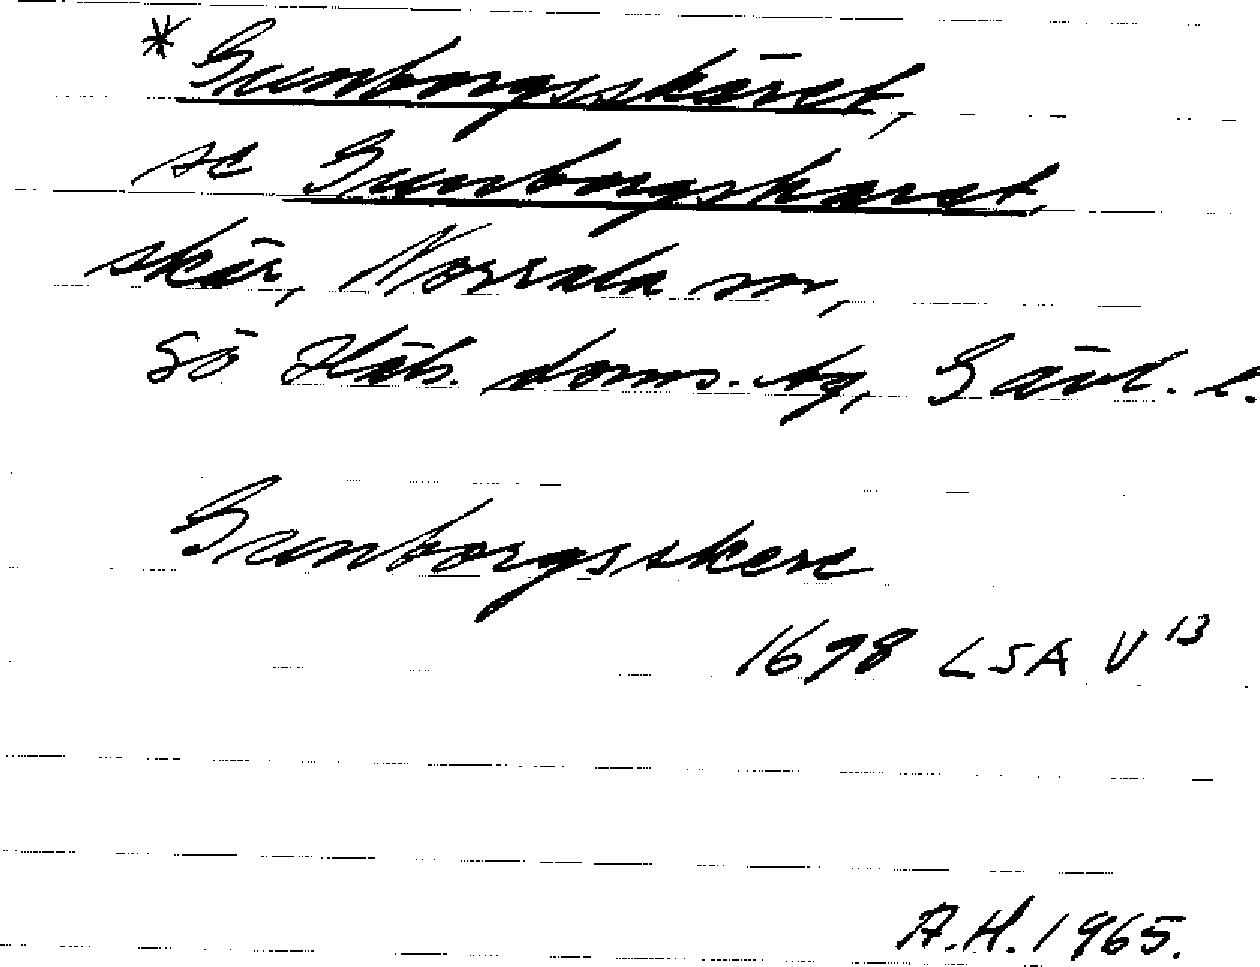 *Gunborgsskäret,
se Gunborgskaret
skär, Norrala sn,
Sö Häls. doms. tg, Gävl. l.
Gunborgsskere
1698 LSA V 13
A.H. 1965.